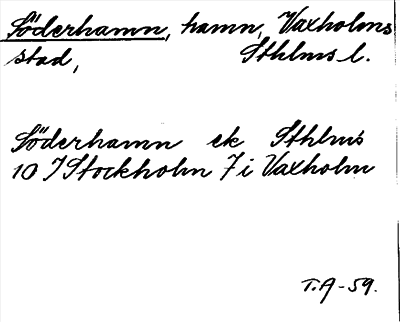 Söderhamn, hamn, Vaxholms
stad, Sthlms l.
Söderhamn ek Sthlms
10 J Stockholm 7 i Vaxholm
T.A-59.